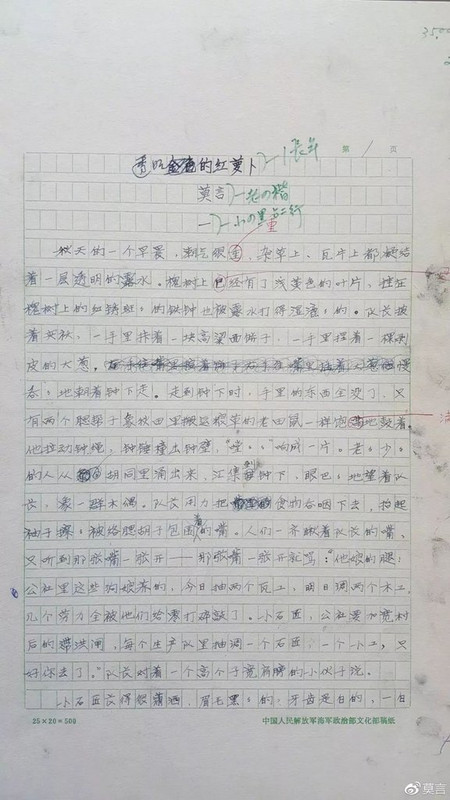 35,00
第 1 页
透明的红萝卜
莫言
一
秋天的一个早晨，潮气很重，杂草上，瓦片上都凝结
着一层透明的露水。槐树上已经有了浅黄色的叶片，挂在
槐树上的红锈斑斑的铁钟也被露水打得湿漉漉的。队长披
着夹袄，一手里拤着一块高粱面饼子，一手里捏着一棵剥
皮的大葱，慢
吞吞地朝着钟下走。走到钟下时，手里的东西全没了，只
有两个腮帮子象秋田里搬运粮草的老田鼠一样饱满地鼓着。
他拉动钟绳，钟锤撞击钟壁，"嘡嘡嘡"响成一片。老老少少
的人从胡同里涌出来，汇集到钟下，眼巴巴地望着队
长，象一群木偶。队长用力把食物吞咽下去，抬起
袖子擦擦被络腮胡子包围着的嘴。人们一齐瞅着队长的嘴，
只听到那张嘴一张开——那张嘴一张开就骂："他娘的腿！
公社里这些狗娘养的，今日抽两个瓦工，明日调两个木工，
几个劳力全被他们给零打碎敲了。小石匠，公社要加宽村
后的滞洪闸，每个生产队里抽调一个石匠，一个小工，只
好你去了。"队长对着一个高个子宽肩膀的小伙子说。
小石匠长得很潇洒，眉毛黑黑的，牙齿是白的，一白
25×20=500
中国人民解放军海军政治部文化部稿纸
莫言